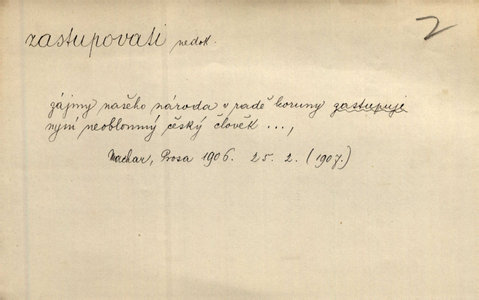 zastupovati nedok. 2
zájmy našeho národa v radě koruny zastupuje
nyní neoblomný český člověk ...,
Machar, Prosa 1906. 25. 2. (1907.)